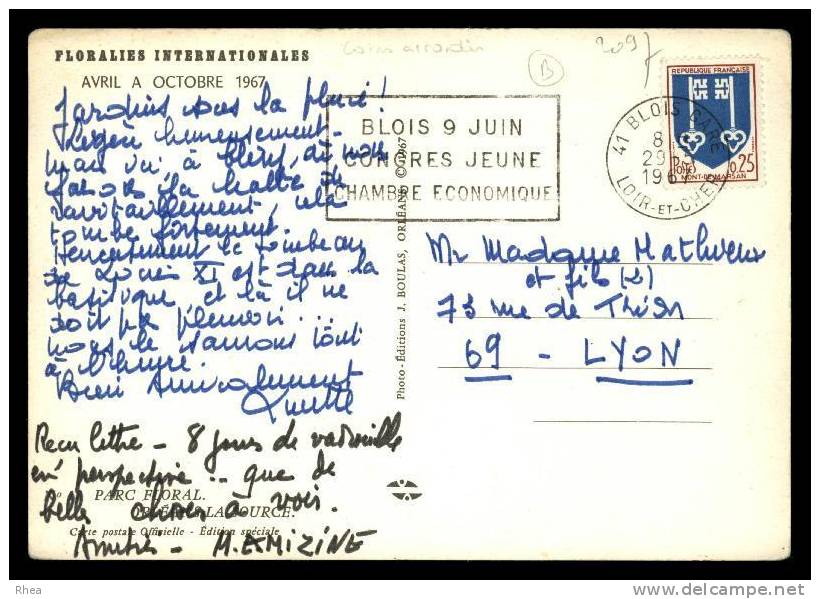 FLORALIES INTERNATIONALES
AVRIL A OCTOBRE 1967
Jardins sous la pluie!
Légère heureusement -
mais ici, à Cléry, où nous
faisons la halte de
ravitaillement, cela
tombe fortement.
Heureusement le tombeau
de Louis XI est dans la
basilique et là il ne
doit pas pleuvoir...
nous le saurons tout
à l'heure
Bien Amicalement
Reçu lettre - 8 jours de vadrouille
en perspective .. que de
belles choses à voir.
Amitiés - M. EMIZINE
PARC FLORAL.
ORLÉANS-LA-SOURCE.
Carte postale Officielle - Édition spéciale
Photo-Éditions J. BOULAS, ORLÉANS © 1967
B
2097
BLOIS 9 JUIN
CONGRES JEUNE
CHAMBRE ECONOMIQUE
41 BLOIS GARE
8
29
1967
LOIR-ET-CHER
REPUBLIQUE FRANÇAISE
POSTES
0,25
MONT-DE-MARSAN
Mr Madame Mathieu
et fils (2)
73 rue de
69 - LYON
Rhea
delcampe.net